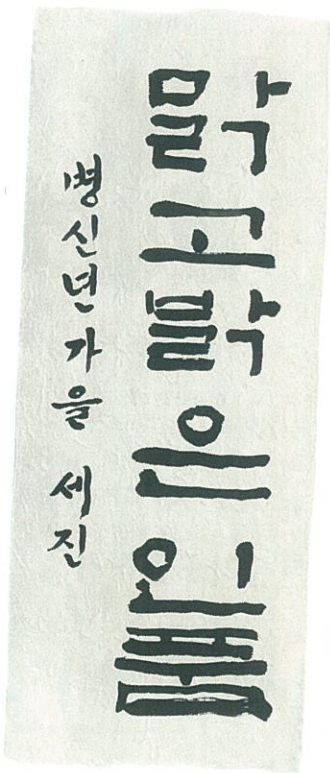 맑고밝은인품
병신년가을 세진